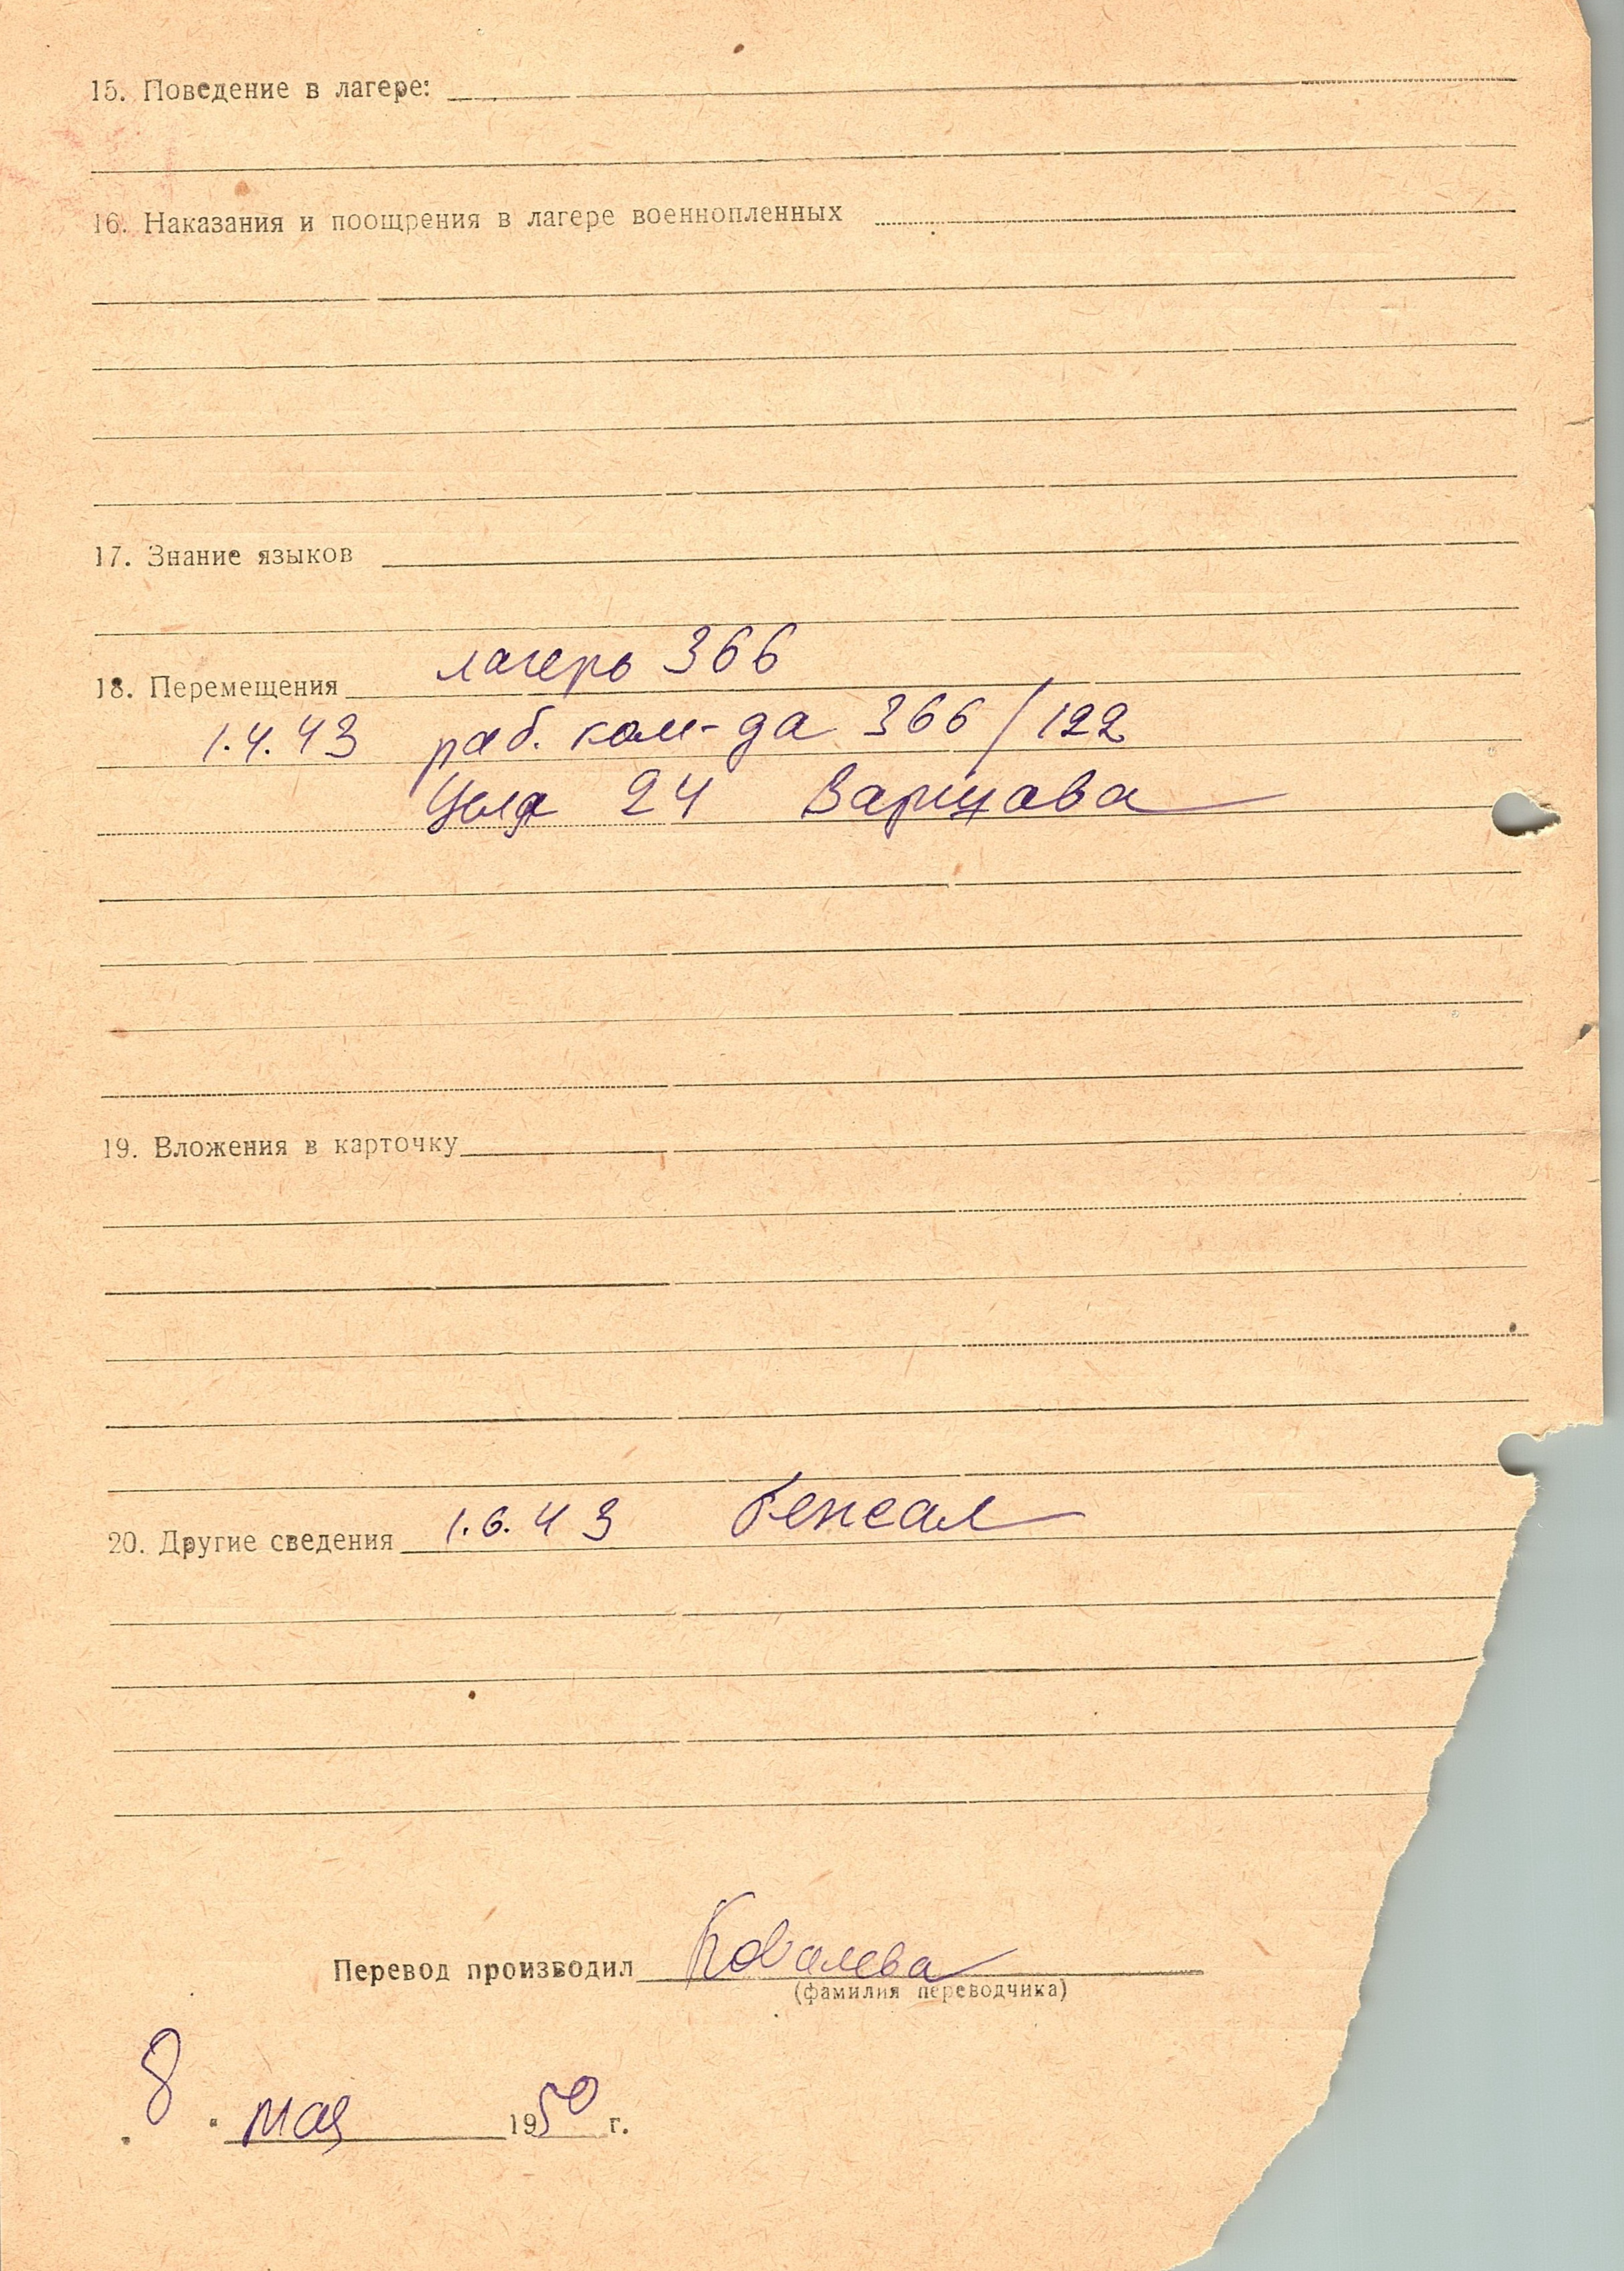 15. Поведение в лагере:
16. Наказания и поощрения в лагере военнопленных
17. Знание языков
18. Перемещения лагерь 366
1.4.43 раб. ком-да 366/122
24 Варшава
19. Вложения в карточку
20. Другие сведения 1.6.43
Перевод производил Ковалева
(фамилия переводчика)
8 " мая 1950 г.